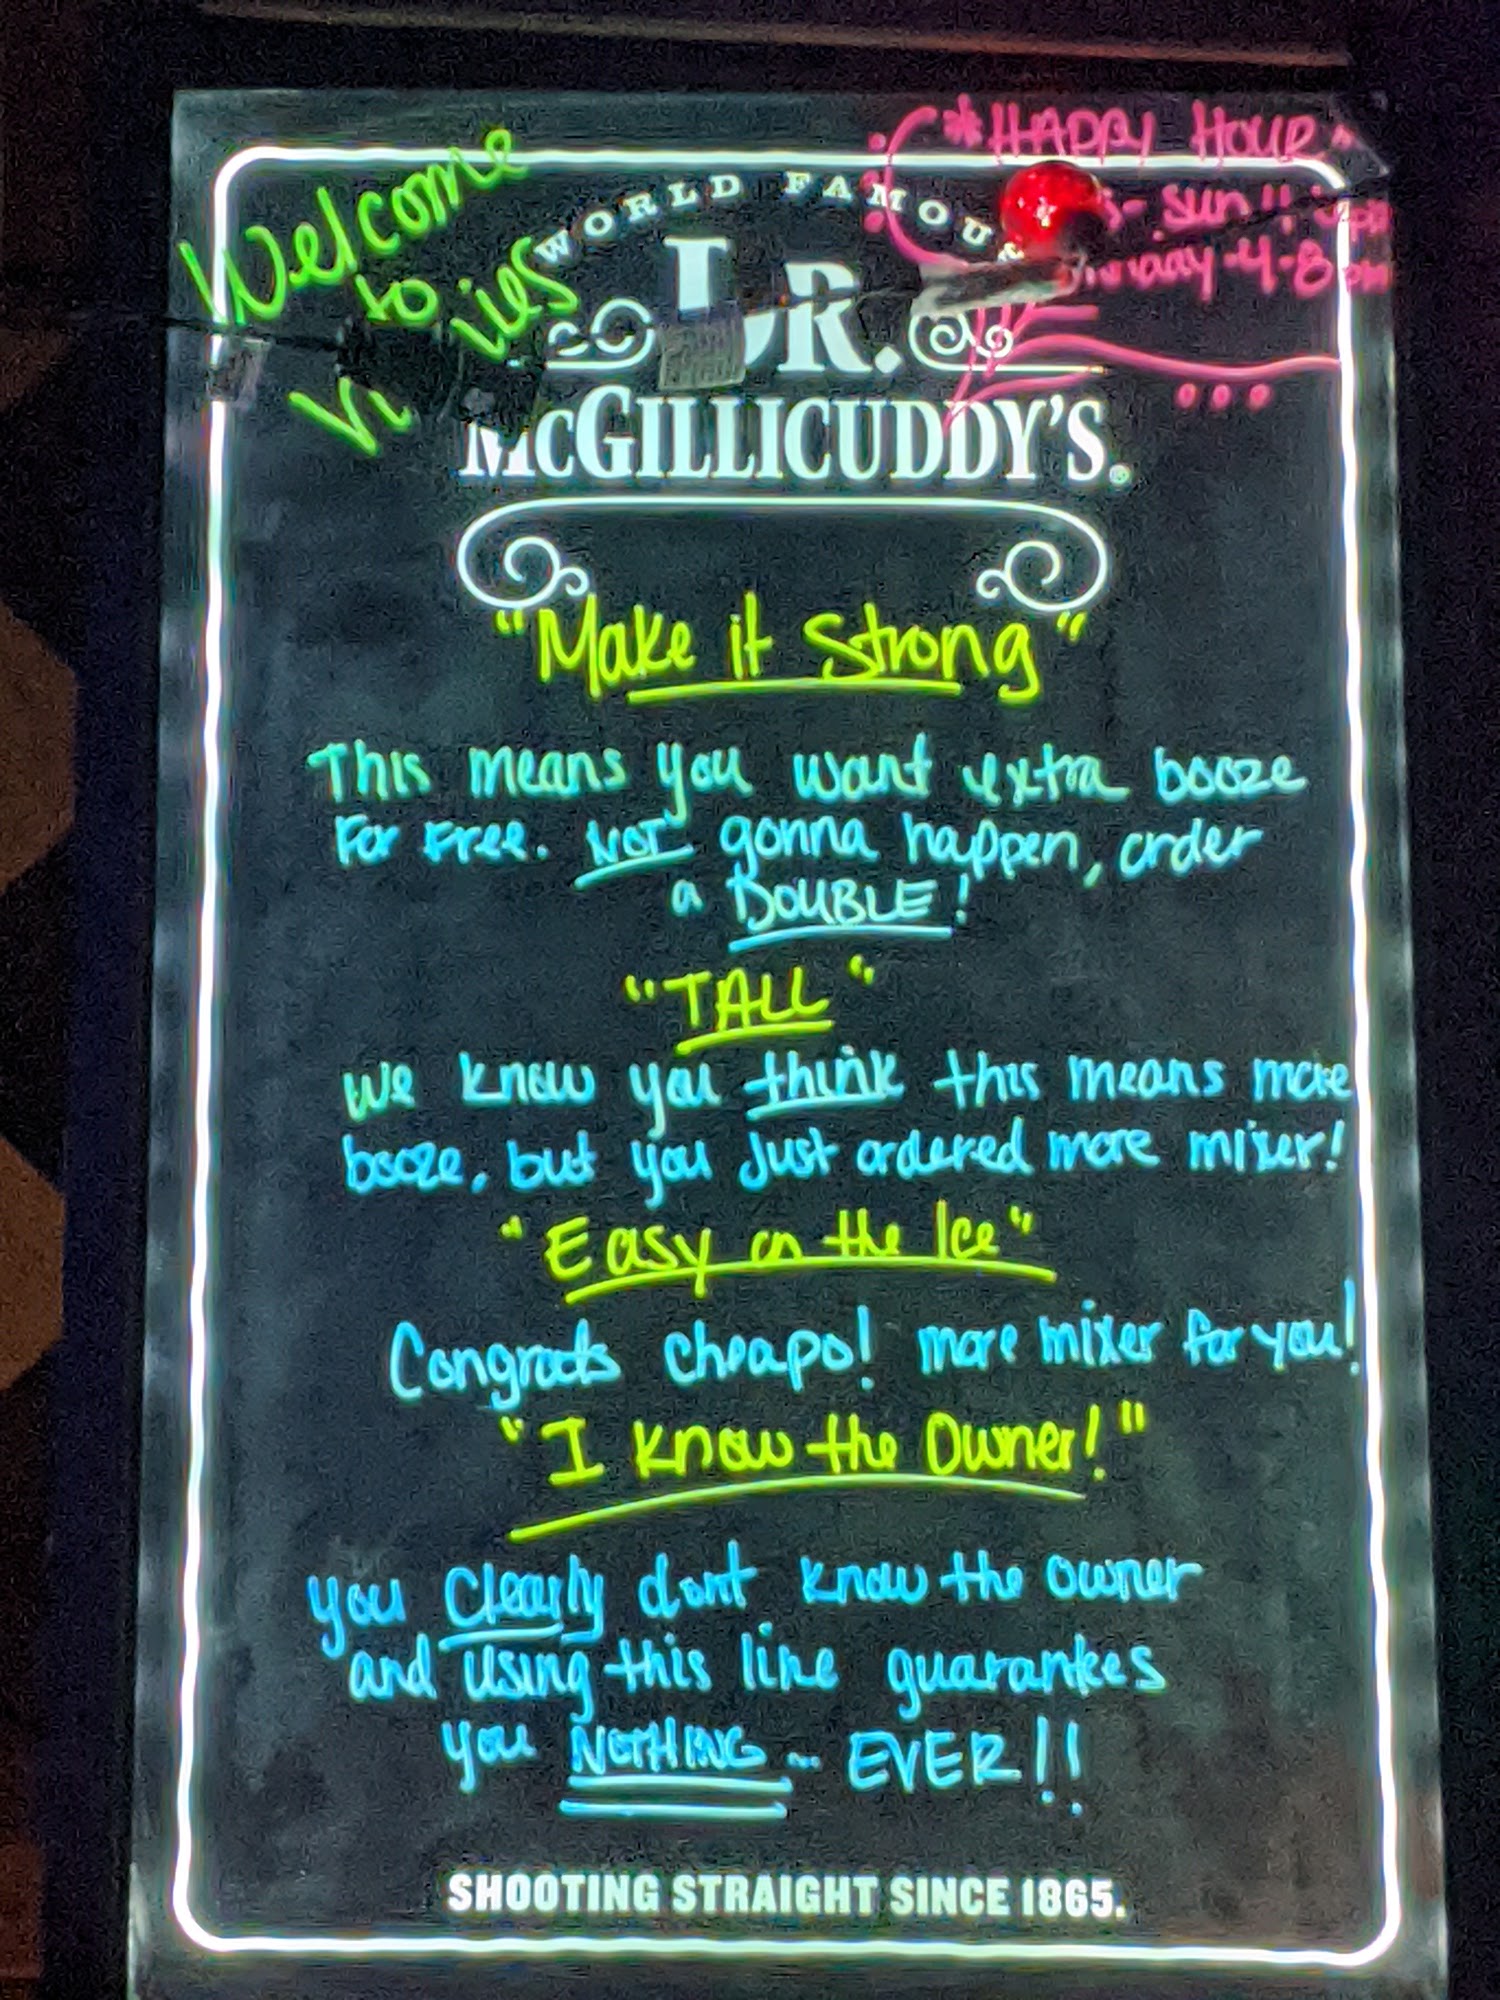 Welcome
to
WORLD FAMOUS
*HAPPY HOUR*
Sun!!
4-8pm
DR.
McGILLICUDDY'S.®
"Make it Strong"
This means you want extra booze
For Free. NOT gonna happen, order
a DOUBLE!
"TALL"
We know you think this means more
booze, but you just ordered more mixer!
"Easy on the Ice"
Congrats cheapo! more mixer for you!
"I know the Owner!"
you Clearly dont know the owner
and using this line guarantees
you NOTHING... EVER!!
SHOOTING STRAIGHT SINCE 1865.